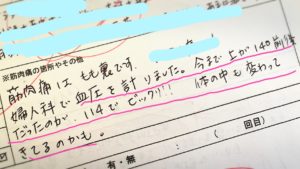 ※筋肉痛の箇所やその他
筋肉痛は もも裏です。
婦人科で血圧を計りました。今まで上が140前後
だったのが、114でビックリ!! 体の中も変わって
きてるのかも。
有・無 ( 回目)